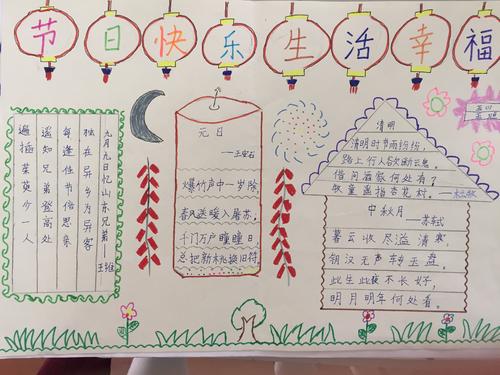 节日快乐生活幸福
九月九日忆山东兄弟——王维
独在异乡为异客
每逢佳节倍思亲
遥知兄弟登高处
遍插茱萸少一人
元日
——王安石
爆竹声中一岁除
春风送暖入屠苏。
千门万户瞳瞳日
总把新桃换旧符
清明
清明时节雨纷纷,
路上行人欲断魂。
借问酒家何处有?
牧童遥指杏花村。——杜牧
中秋月
——苏轼
暮云收尽溢清寒,
银汉无声转玉盘。
此生此夜不长好,
明月明年何处看。